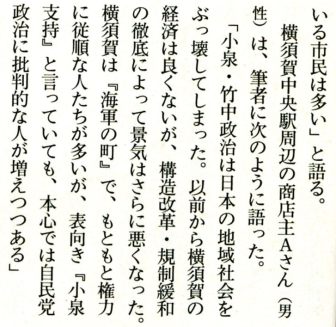 いる市民は多い」と語る。
横須賀中央駅周辺の商店主Aさん（男
性）は、筆者に次のように語った。
「小泉・竹中政治は日本の地域社会を
ぶっ壊してしまった。以前から横須賀の
経済は良くないが、構造改革・規制緩和
の徹底によって景気はさらに悪くなった。
横須賀は『海軍の町』で、もともと権力
に従順な人たちが多いが、表向き『小泉
支持』と言っていても、本心では自民党
政治に批判的な人が増えつつある」